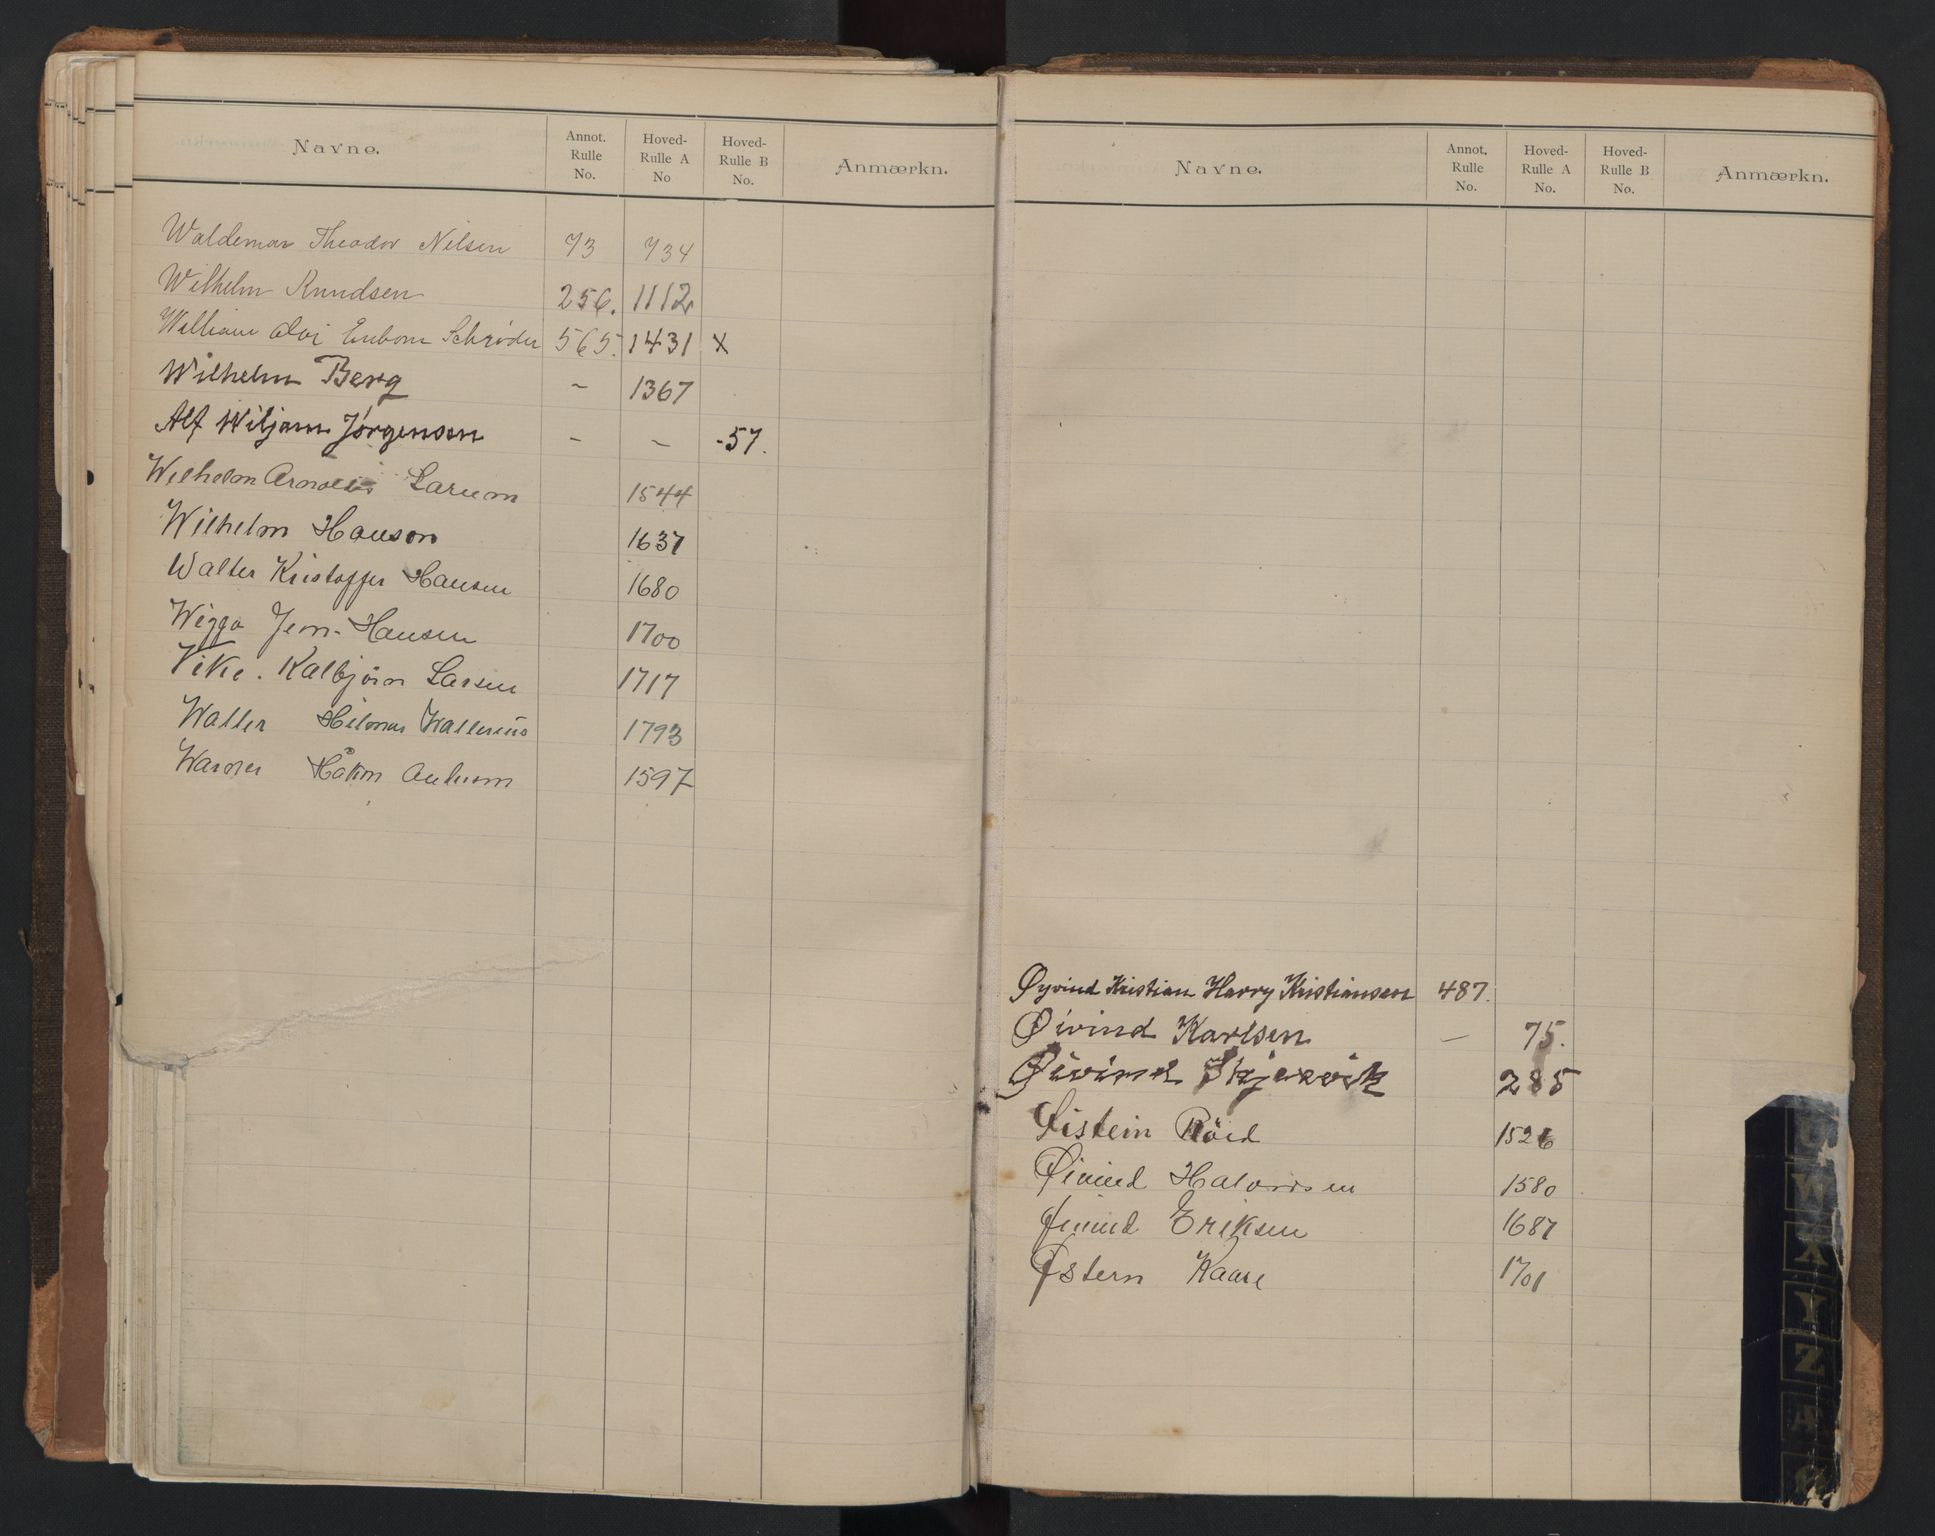 Navne. Annot. Rulle No. Hoved-Rulle A No Hoved-Rulle B No. Anmærkn.
Waldemar Theodor Nilsen 73 734
Wilhelm Knudsen 256. 1112
William Enbom Schrøder 565. 1431 x
Wilhelm Berg - 1367
Alf Wiljam Jørgensen - - -57.
Wilhelm Larum 1544
Wilhelm Hanson 1637
Walter Kristoffer Hansen 1680
Wiggo Jem. Hansen 1700
Vike. Kalbjörn Larsen 1717
Walter Hilmar Wallerius 1793
Warner Håkon 1597
Navne. Annot. Rulle No. Hoved-Rulle A No. Hoved-Rulle B No. Anmærkn.
Øyvind Kristian Harry Kristiansen 487.
Øivind Karlsen - 75.
Øivind Skjervik 285
Øistein Röed 1526
Øivind Halvorsen 1580
Øivind Eriksen 1687
Østern Kaare 1701
U
W
X
Y
Z
Æ
Ø